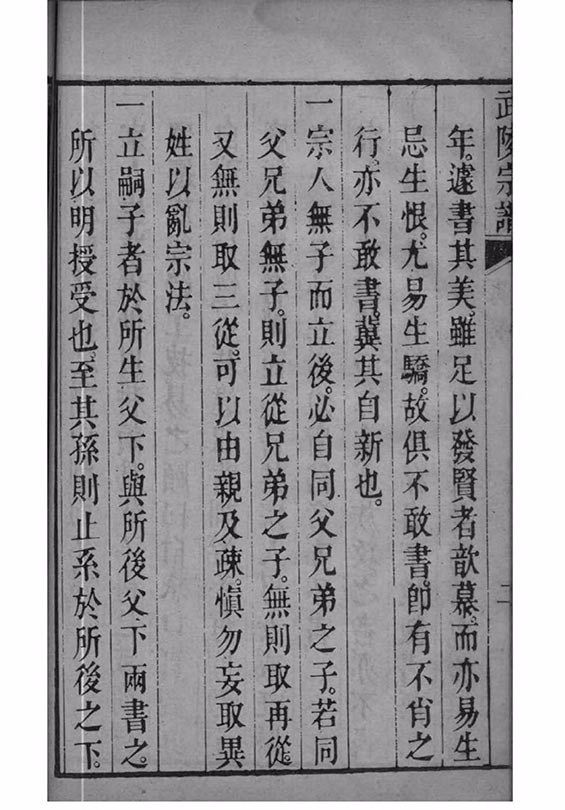 武陵宗譜
年。遽書其美。雖足以發賢者歆慕。而亦易生
忌生恨。尤易生驕。故俱不敢書。卽有不肖之
行。亦不敢書。冀其自新也。
一宗人無子而立後。必自同父兄弟之子。若同
父兄弟無子。則立從兄弟之子。無則取再從。
又無則取三從。可以由親及疎。愼勿妄取異
姓以亂宗法。
一立嗣子者於所生父下。與所後父下兩書之。
所以明授受也。至其孫則止系於所後之下。